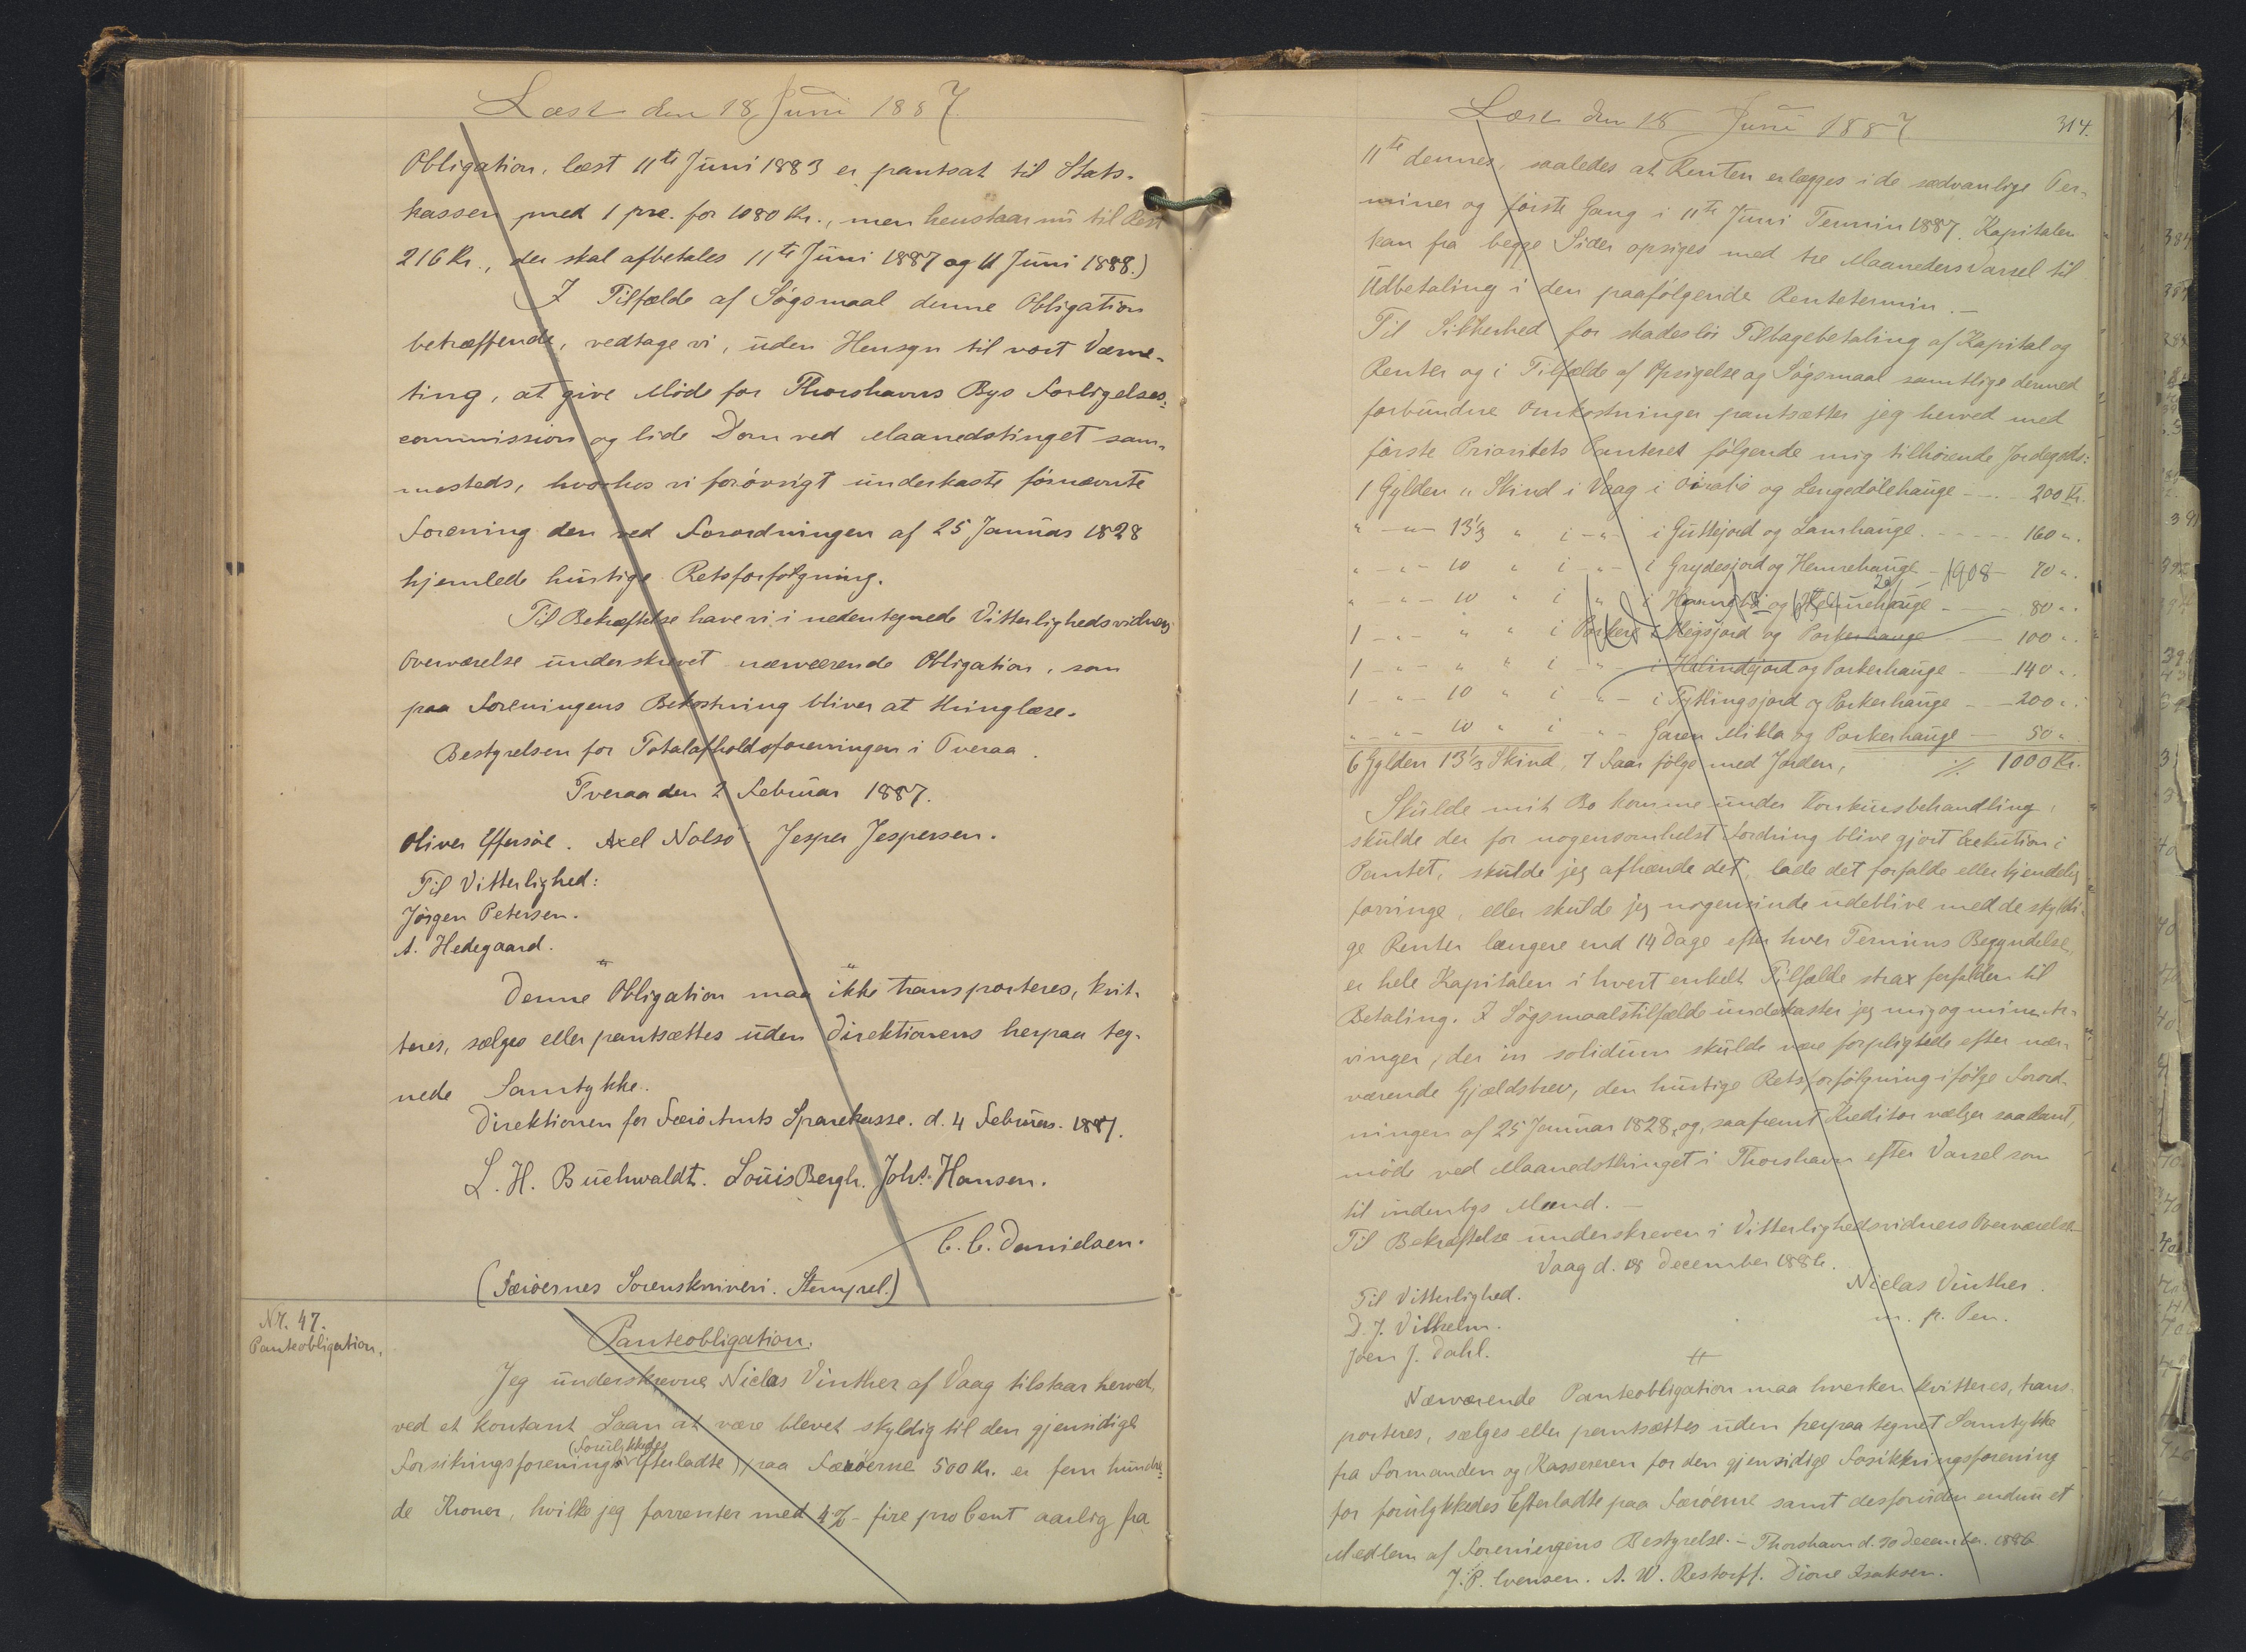 Læst den 18 Juni 1887.
Obligation, læst 11te Juni 1883 er pantsat til Stats-
kassen med 1 pre. for 1080 Kr., men henstaar nu til Rest
216 Kr., der skal afbetales 11te Juni 1887 og 11 Juni 1888.)
I Tilfælde af Søgsmaal denne Obligation
betræffende, vedtage vi, uden Hensyn til vort Værne-
ting, at give Møde for Thorshavns Bys Forligelses-
commission og lide Dom ved Maanedstinget sam-
mesteds, hvorhos vi forøvrigt underkaste førnævnte
Forening den ved Forordningen af 25 Januar 1828
hjemlede hurtige Retsforfølgning.
Til Bekræftelse have vi i nedentegnede Vitterlighedsvidners
Overværelse underskrevet nærværende Obligation, som
paa Foreningens Bekostning bliver at thinglæse.
Bestyrelsen for Totalafholdsforeningen i Tveraa.
Tveraa den 2 Februar 1887.
Oliver Effersøe. Axel Nolsø. Jesper Jespersen.
Til Vitterlighed:
Jørgen Petersen.
A. Hedegaard.
Denne Obligation maa ikke transporteres, kvit-
teres, sælges eller pantsættes uden Direktionens herpaa teg-
nede Samtykke.
Direktionen for Færø Amts Sparekasse. d. 4 Februar. 1887.
L. H. Buchwaldt. Louis Bergh. Johs. Hansen.
C. C. Danielsen.
(Færøernes Sorenskriveri. Stempel.)
Nr. 47.
Panteobligation.
Panteobligation.
Jeg underskrevne Niclas Vinther af Vaag tilstaar herved,
ved et kontant Laan at være blevet skyldig til den gjensidige
(Forulykkedes
Forsikringsforenings Efterladte) paa Færøerne 500 Kr. er fem hundre-
de Kroner, hvilke jeg forrenter med 4% - fire pro Cent aarlig fra
Læst den 18 Juni 1887
314.
11te dennes, saaledes at Renten erlægges i de sædvanlige Ter-
miner og første Gang i 11te Juni Termin 1887. Kapitalen
kan fra begge Sider opsiges med tre Maaneders Varsel til
Udbetaling i den paafølgende Rentetermin. -
Til Sikkerhed for skadesløs Tilbagebetaling af Kapital og
Renter og i Tilfælde af Opsigelse og Søgsmaal samtlige dermed
forbundne Omkostninger pantsætter jeg herved med
første Prioritets Panteret følgende mig tilhørende Jordegods:
1 Gylden " Skind i Vaag i og Lengedølehauge - - - 200 Kr.
" - " - 13⅓ " i - " - i Guttejord og Lamhauge - - - - - 160 ".
" - " - 10 " i - " - i Grydesjord og Hemrehauge - 1908 - 70 ".
" - " - 10 " i " i og Hemrehauge - - - 80 ".
1 - " - " " i Porkere i Megsjord og Porkerhauge - - 100 ".
1 - " - " " i - " - i Halindejord og Porkerhauge - - 140 ".
1 - " - 10 " i - " - i Tytlingsjord og Porkerhauge - - 200 ".
" - " - 10 " i - " - Garen Mikla og Porkerhauge - 50 ".
6 Gylden 13⅓ Skind, 7 Faar følge med Jorden, % 1000 Kr.
Skulde mit Bo komme under Konkursbehandling,
skulde der for nogensomhelst Fordring blive gjort Exekution i
Pantet, skulde jeg afhænde det, lade det forfalde eller kjendelig
forringe, eller skulde jeg nogensinde udeblive med de skyldi-
ge Renter længere end 14 Dage efter hver Termins Begyndelse,
er hele Kapitalen i hvert enkelt Tilfælde strax forfalden til
Betaling. I Søgsmaalstilfælde underkaster jeg mig og mine Ar-
vinger, der in solidum skulde være forpligtede efter nær-
værende Gjældsbrev, den hurtige Retsforfølgning ifølge Forord-
ningen af 25 Januar 1828, og, saafremt Kreditor vælger saadant,
møde ved Maanedsthinget i Thorshavn efter Varsel som
til indenbys Mænd. -
Til Bekræftelse underskreven i Vitterlighedsvidners Overværelse
Vaag d. 18 December 1886.
Til Vitterlighed.
Niclas Vinther.
D. J. Vilhelm.
m. p. Pen.
Joen J. Dahl.
Nærværende Panteobligation maa hverken kvitteres, trans-
porteres, sælges eller pantsættes uden herpaa tegnet Samtykke
fra Formanden og Kassereren for den gjensidige Forsikkringsforening
for forulykkedes Efterladte paa Færøerne samt desforuden endnu et
Medlem af Foreningens Bestyrelse. - Thorshavn d. 30 December. 1886
J. P. Evensen. A. W. Restorff. Dione Isaksen.